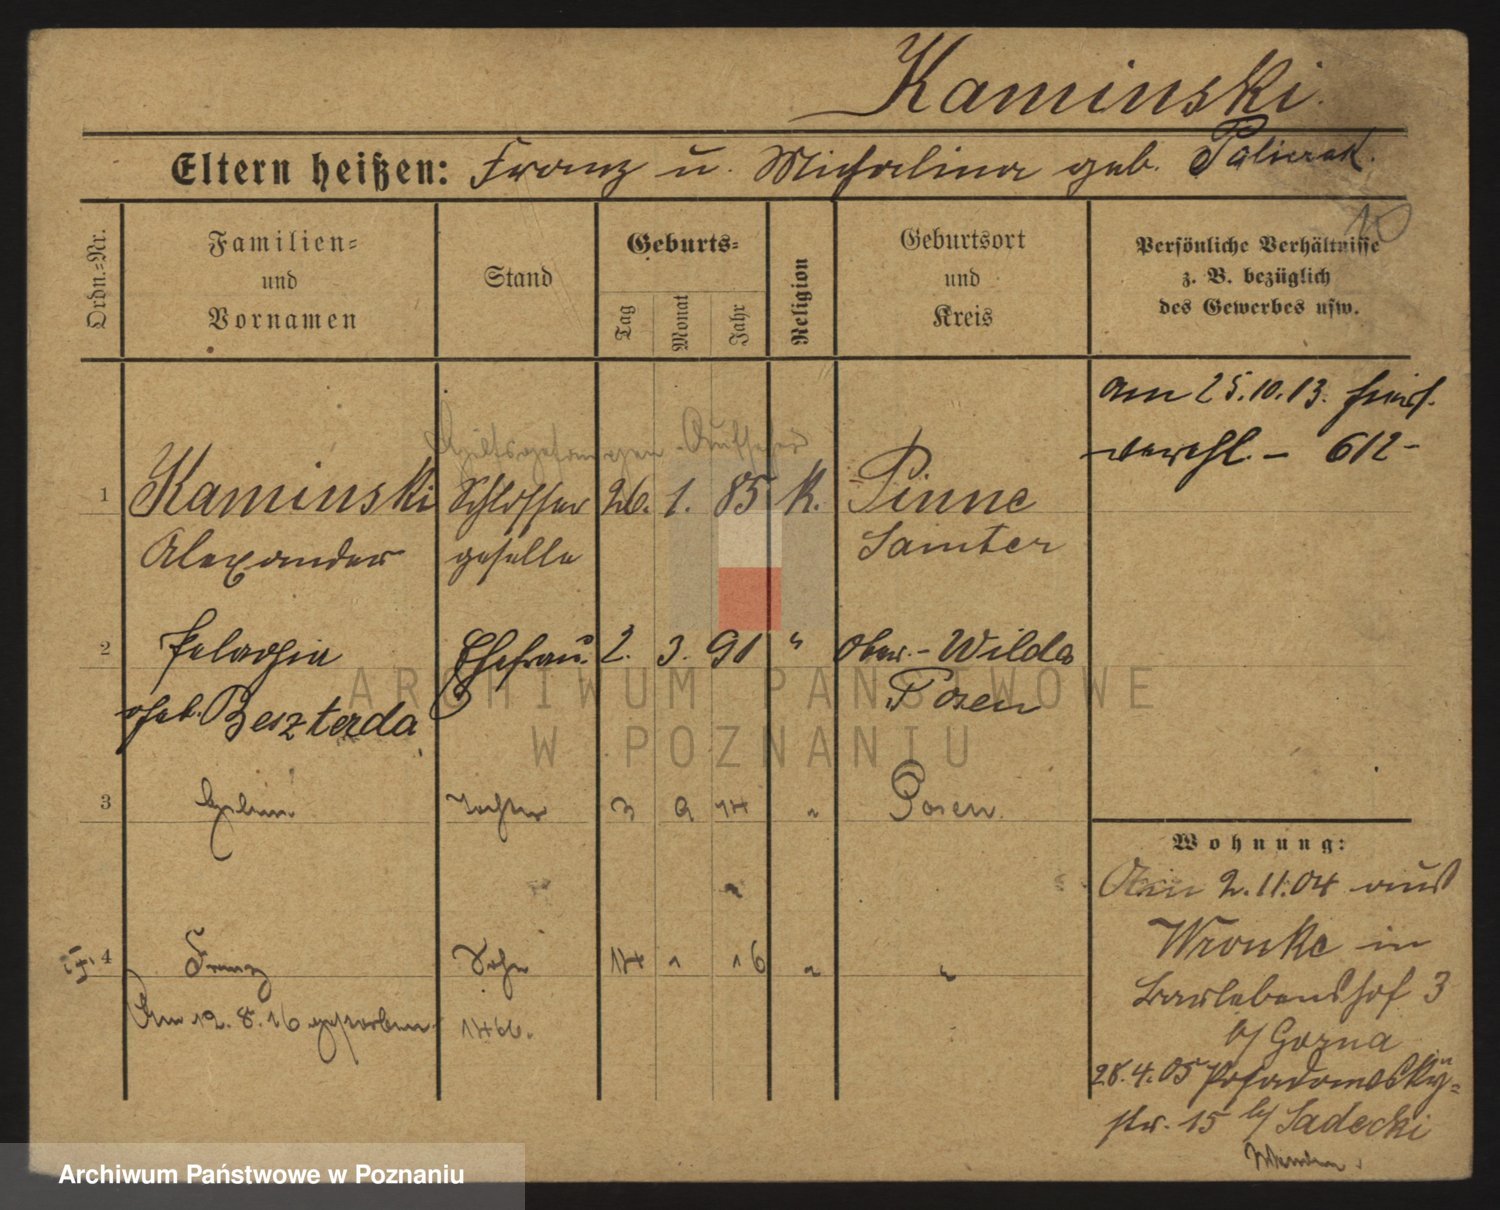 Kaminski.
Eltern heißen: Franz u. Michalina geb.
10
Ordn.-Nr.
Familien- und Vornamen
Stand
Geburts-
Tag
Monat
Jahr
Religion
Geburtsort und Kreis
Persönliche Verhältnisse z. B. bezüglich des Gewerbes usw.
am 25.10.13.
verehl. – 612 –
Hilfsgefangen-Aufseher
1 Kaminski Schlosser 26. 1. 85 K. Pinne
Alexander geselle Samter
2 Pelagia Ehefrau. 2. 3. 90 " Ober-Wilda
geb. Beszterda Posen
3 Tochter 3 9 14 " Posen.
Wohnung:
Am 2.11.04 aus
Wronke in
4 Franz Sohn 14 16 " "
Barlebenshof 3
Am 12.8.16 gestorben 1466.
b/ Gorna
28.4.05 Posadowsky-
str. 15 b/ Sadecki
ARCHIWUM PAŃSTWOWE
W POZNANIU
Archiwum Państwowe w Poznaniu